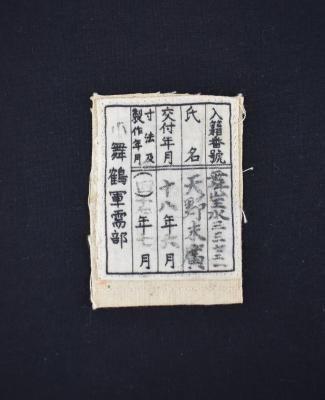 入籍番號 舞主水三三七三二
氏名 天野末廣
交付年月 十八年六月
寸法及製作年月 (四)十七年七月
小 舞鶴軍需部